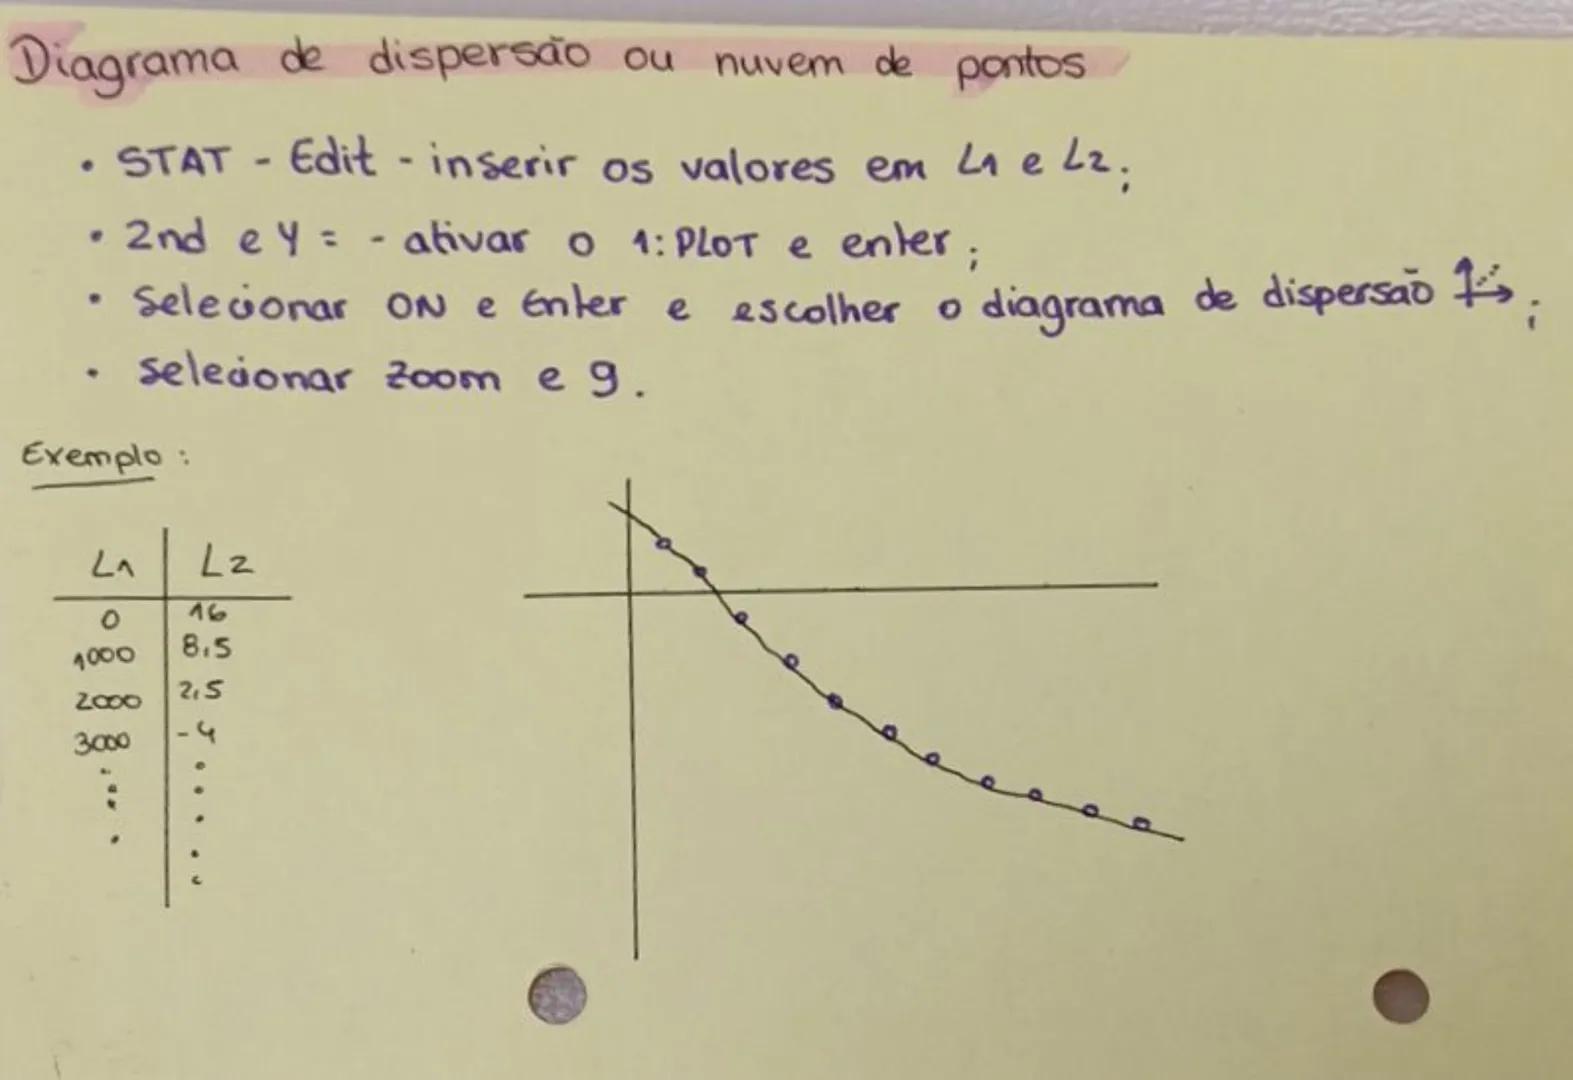 Diagrama de dispersão ou nuvem de pontos
• STAT - Edit - inserir os valores em L1 e L2;
• 2nd e Y = - ativar o 1: PLOT e enter;
• Selecionar ON e Enter e escolher o diagrama de dispersão ;
• Selecionar Zoom e 9.
Exemplo:
L1 L2
0 16
1000 8,5
2000 2,5
3000 -4